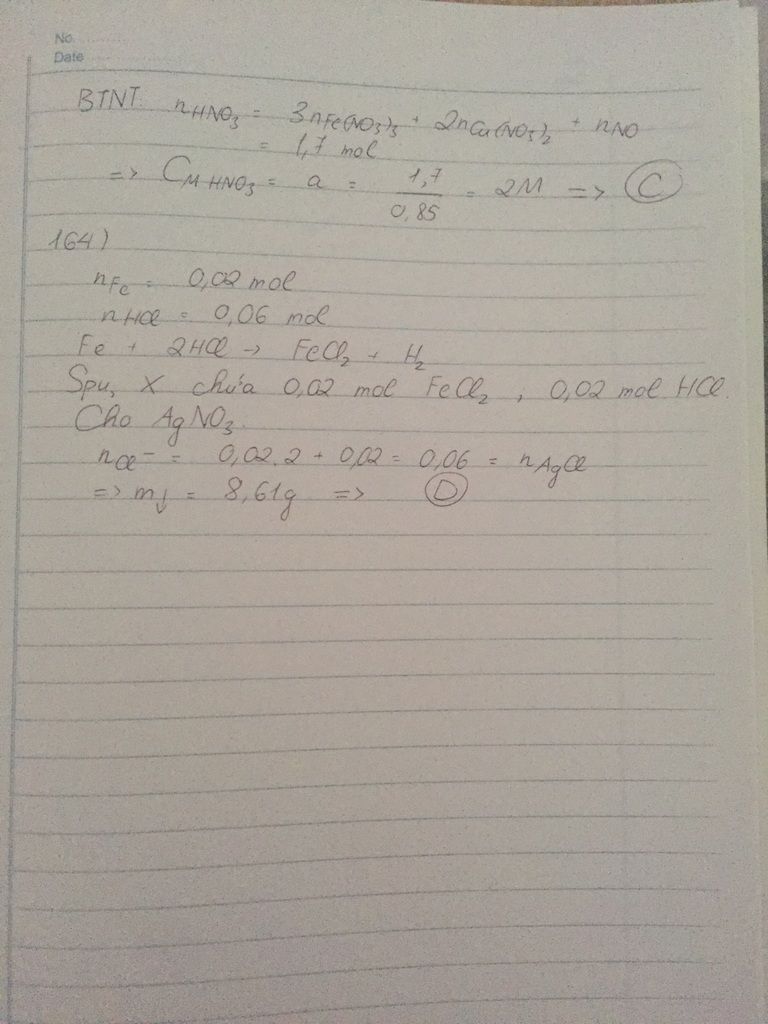 No.
Date
BTNT: nHNO₃ = 3nFe(NO₃)₃ + 2nCu(NO₃)₂ + nNO
= 1,7 mol
=> CM HNO₃ = a = 1,7/0,85 = 2M => C
164)
nFe = 0,02 mol
nHCl = 0,06 mol
Fe + 2HCl → FeCl₂ + H₂
Spư, X chứa 0,02 mol FeCl₂, 0,02 mol HCl.
Cho AgNO₃.
nCl⁻ = 0,02.2 + 0,02 = 0,06 = nAgCl
=> m↓ = 8,61g => D